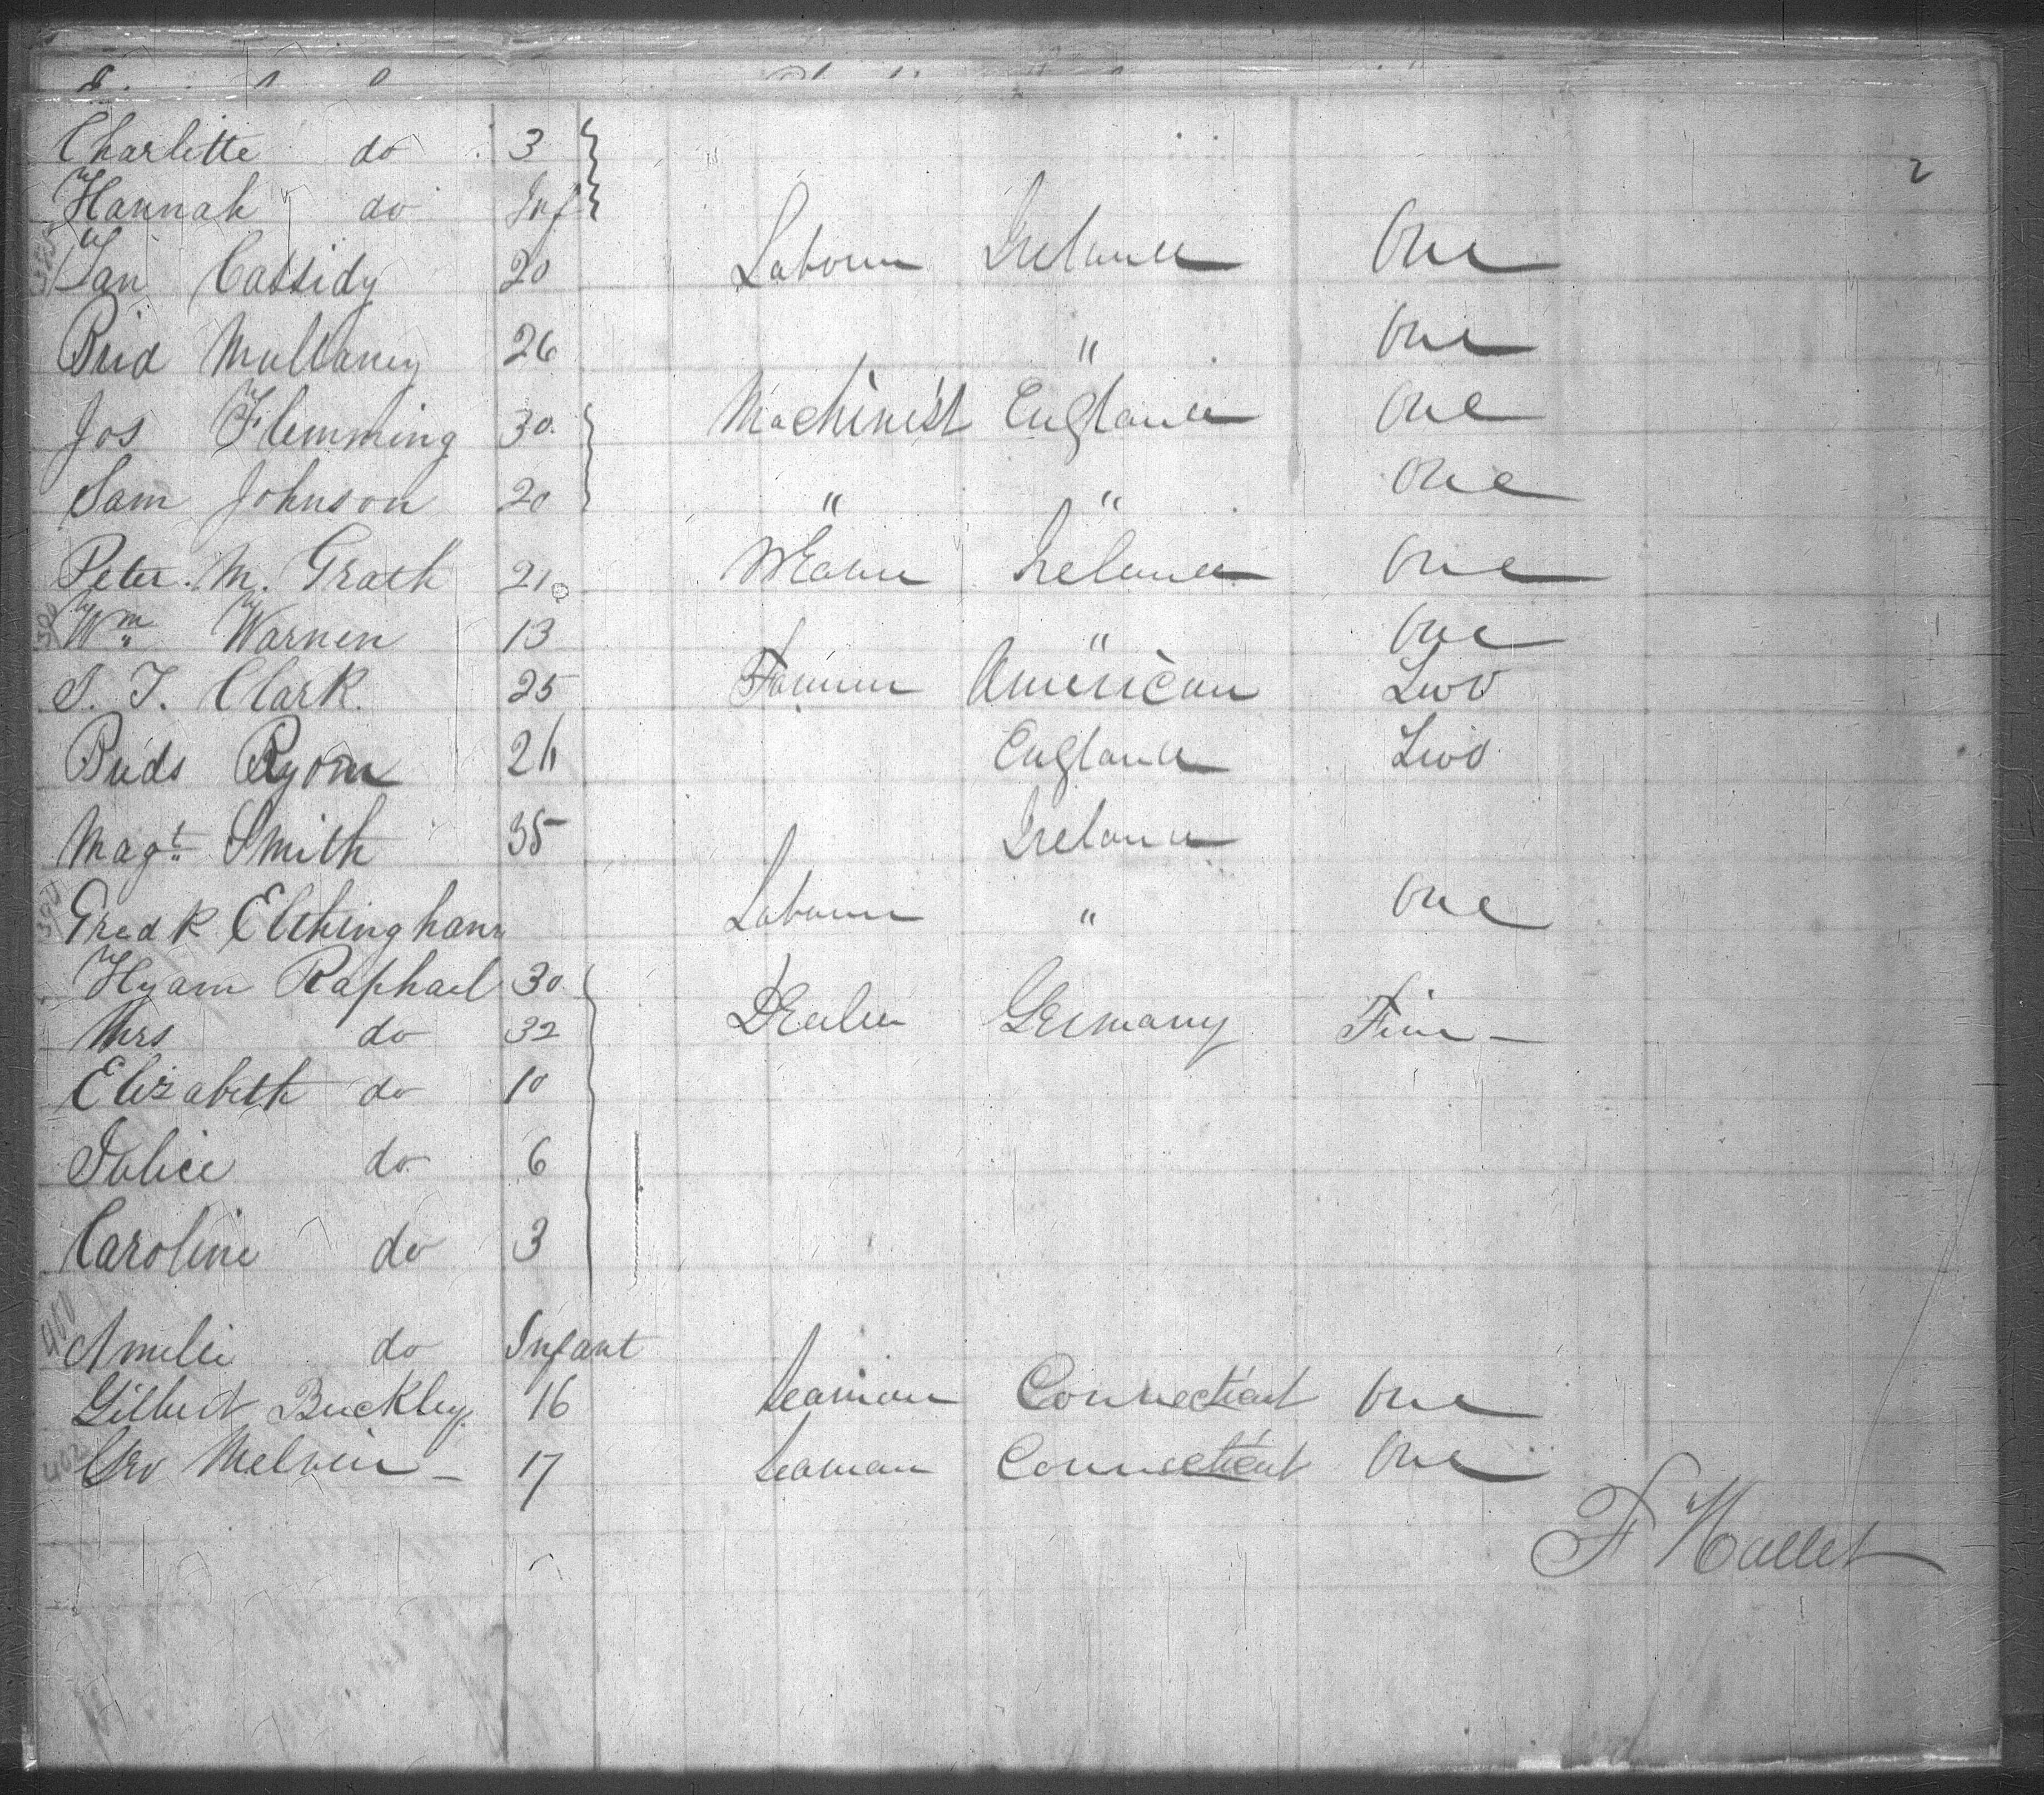 Charlitte do 3
2
Hannah do Inf
385
Ian Cassidy 20 Labourer Ireland One
Brid Mullaney 26 " One
Jos Flemming 30 Machinist England One
Sam Johnson 20 " " One
Peter M. Grath 21 Ireland One
390
Wm Warnen 13 " One
S. T. Clark 25 Farmer American Two
Brids Ryom 26 England Two
Magt Smith 35 Ireland
Fredk Labourer " One
Hyam Raphael 30
Mrs do 32 Dealer Germany Five
Elizabeth do 10
Julice do 6
Caroline do 3
400
Amelie do Infant
Gilbert Buckley 16 Seaman Connecticut One
402
Geo Melvin 17 Seaman Connecticut One
F Hallet